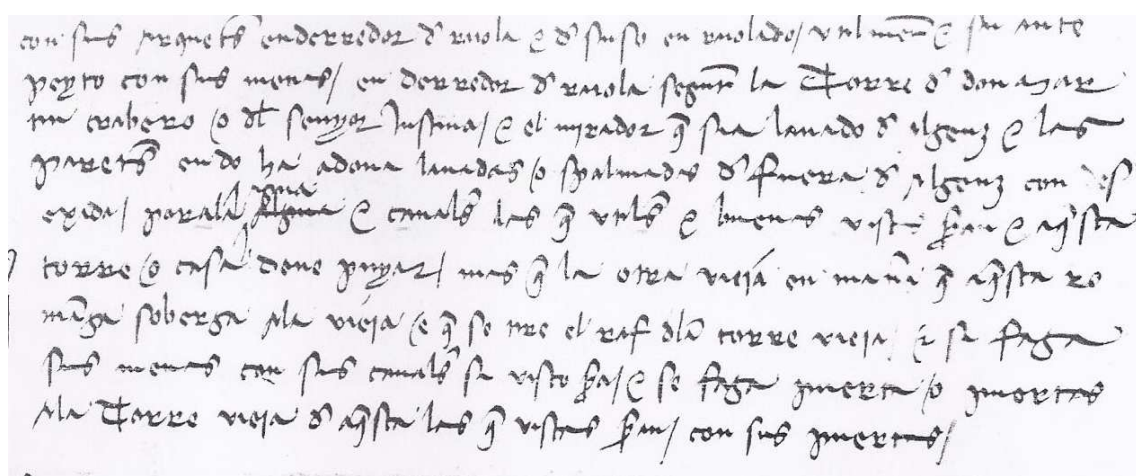 con sus arquets enderredor d raiola e d suso en raiolado / utilment e su ante
peyto con sus menas / en derredor d raiola segunt la Torre d don Mar
tin crabero / o dl senyor Justicia / e el mirador q sia lavado d algenz e las
parets en do ha adoua lavadas / o spalmadas d fuera d algenz con des
exida / poral agua e canals las q utils e buenas vistas sran e aqsta
torre / o casa deve puyar / mas q la otra vieja en mana q aqsta ro
manga soberga ala vieja / e q se tire el raf dla torre vieja / e si faga
sus menas con sus canals si visto sra / e se faga puerta / o puertas
ala Torre vieja d aqsta las q vistas sran / con sus puertas /